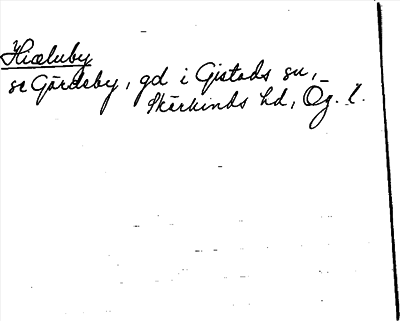 Hiæluby
se Gärdeby, gd i Gistads sn,
Skärkinds hd, Ög. l.